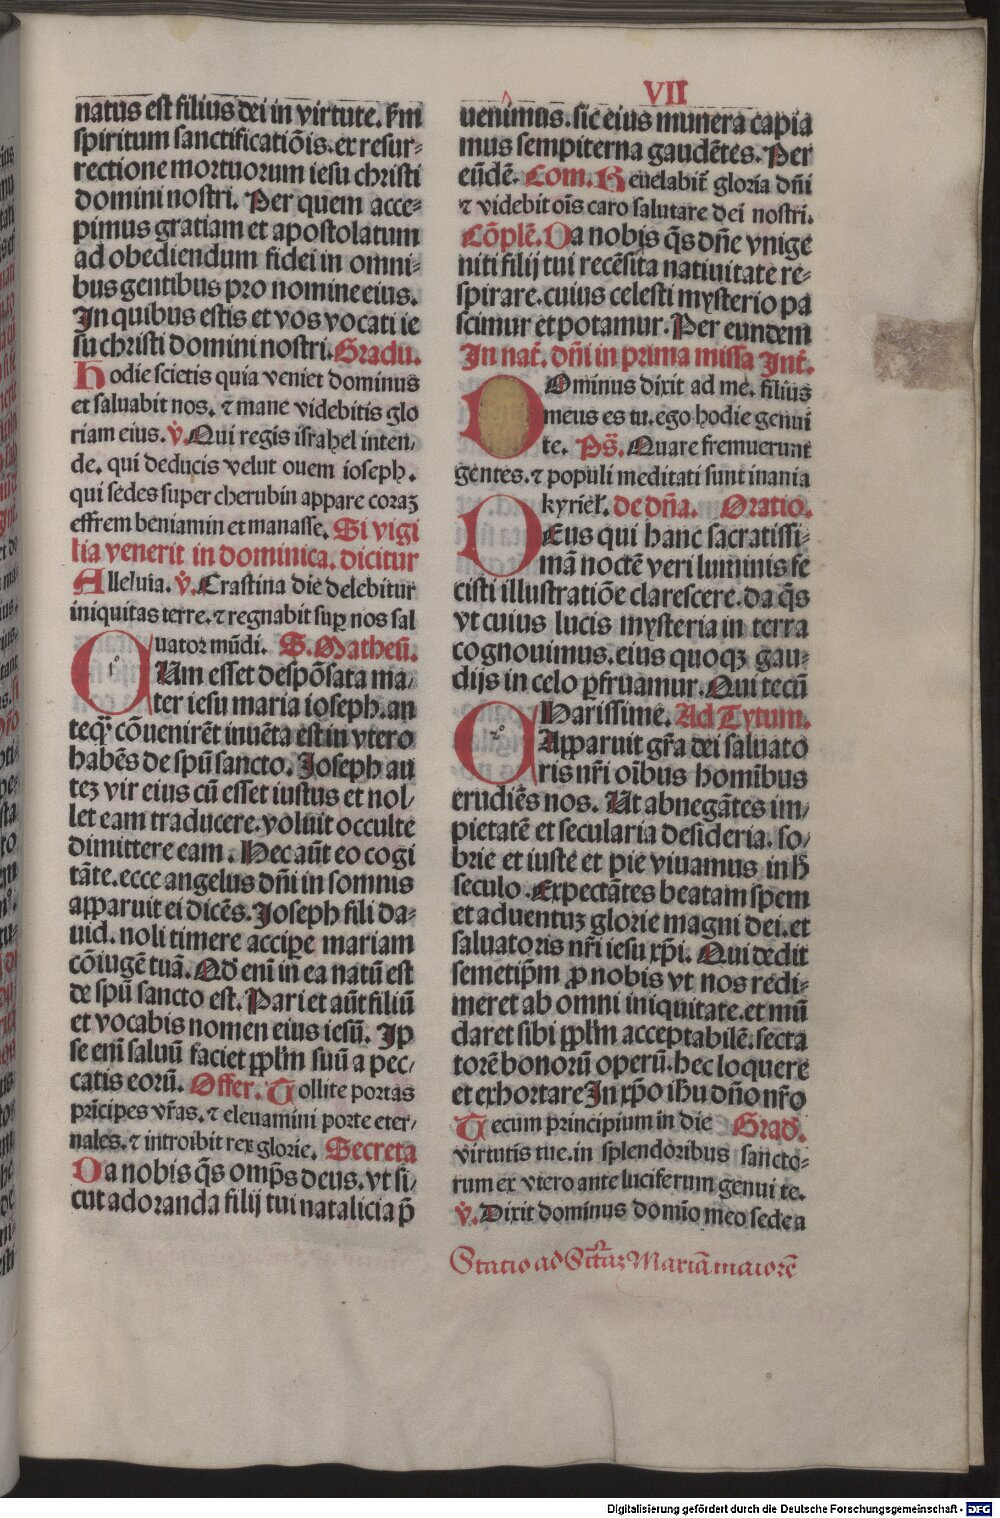 VII
natus est filius dei in virtute. scd̄m
spiritum sanctificatiōis. ex resur⸗
rectione mortuorum iesu christi
domini nostri. Per quem acce⸗
pimus gratiam et apostolatum
ad obediendum fidei in omni⸗
bus gentibus pro nomine eius.
In quibus estis et vos vocati ie
su christi domini nostri. Gradu.
Hodie scietis quia veniet dominus
et saluabit nos. ⁊ mane videbitis glo
riam eius. v̇. Qui regis israhel inten/
de. qui deducis velut ouem ioseph.
qui sedes super cherubin appare coraꝫ
effrem beniamin et manasse. Si vigi
lia venerit in dominica. dicitur
Alleluia. v̇. Crastina die delebitur
iniquitas terre. ⁊ regnabit suꝑ nos sal
uator mūdi. S. Matheū.
CUm esset despōsata ma/
ter iesu maria ioseph. an
teqȝ cōuenirēt inuēta est in vtero
habēs de spū sancto. Joseph au
teꝫ vir eius cū esset iustus et nol/
let eam traducere. voluit occulte
dimittere eam. Hec aūt eo cogi
tāte. ecce angelus dn̄i in somnis
apparuit ei dicēs. Joseph fili da⸗
uid. noli timere accipe mariam
cōiugē tuā. Qd̄ enī in ea natū est
de spū sancto est. Pariet aūt filiū
et vocabis nomen eius iesū. Ip
se enī saluū faciet pp̄lm̄ suū a pec/
catis eorū. Offer. Tollite portas
prīcipes vr̄as. ⁊ eleuamini porte eter/
nales. ⁊ introibit rex glorie. Secreta
Da nobis q̄s omp̄s deus. vt si/
cut adoranda filij tui natalicia p̄
uenimus. sic eius munera capia
mus sempiterna gaudētes. Per
eūdē. Com. Reuelabit̄ gloria dn̄i
⁊ videbit oīs caro salutare dei nostri.
Cōplē. Da nobis q̄s dn̄e vnige
niti filij tui recēsita natiuitate re⸗
spirare. cuius celesti mysterio pa
scimur et potamur. Per eundem
In nat̄. dn̄i in prima missa Int̄.
DOminus dixit ad me. filius
meus es tu. ego hodie genui
te. Ps̄. Quare fremuerunt
gentes. ⁊ populi meditati sunt inania
kyrieł. de dn̄a. Oratio.
DEus qui hanc sacratissi⸗
mā noctē veri luminis fe
cisti illustratiōe clarescere. da q̄s
vt cuius lucis mysteria in terra
cognouimus. eius quoqꝫ gau⸗
dijs in celo ꝑfruamur. Qui tecū
Charissime. Ad Tytum.
Apparuit gr̄a dei saluato
ris nr̄i oībus homibus
erudiēs nos. Ut abnegātes im/
pietatē et secularia desideria. so/
brie et iuste et pie viuamus in h̄
seculo. Expectātes beatam spem
et aduentuꝫ glorie magni dei. et
saluatoris nr̄i iesu xp̄i. Qui dedit
semetip̄m ꝓ nobis vt nos redi⸗
meret ab omni iniquitate. et mū
daret sibi pp̄lm̄ acceptabilē. secta
torē bonorū operū. hec loquere
et exhortare In xp̄o ih̄u dn̄o nr̄o
Tecum principium in die Grad.
virtutis tue. in splendoribus sancto⸗
rum ex vtero ante luciferum genui te.
v̇. Dixit dominus domīo meo sede a
Statio ad Sctāꝫ Mariā maiorē
Digitalisierung gefördert durch die Deutsche Forschungsgemeinschaft - DFG